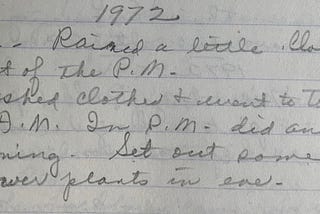 1972
.- Rained a little. Clo
t of the P.M.-
shed clothes & went to T
A.M. In P.M. did an
ning. Set out some
wer plants in eve-